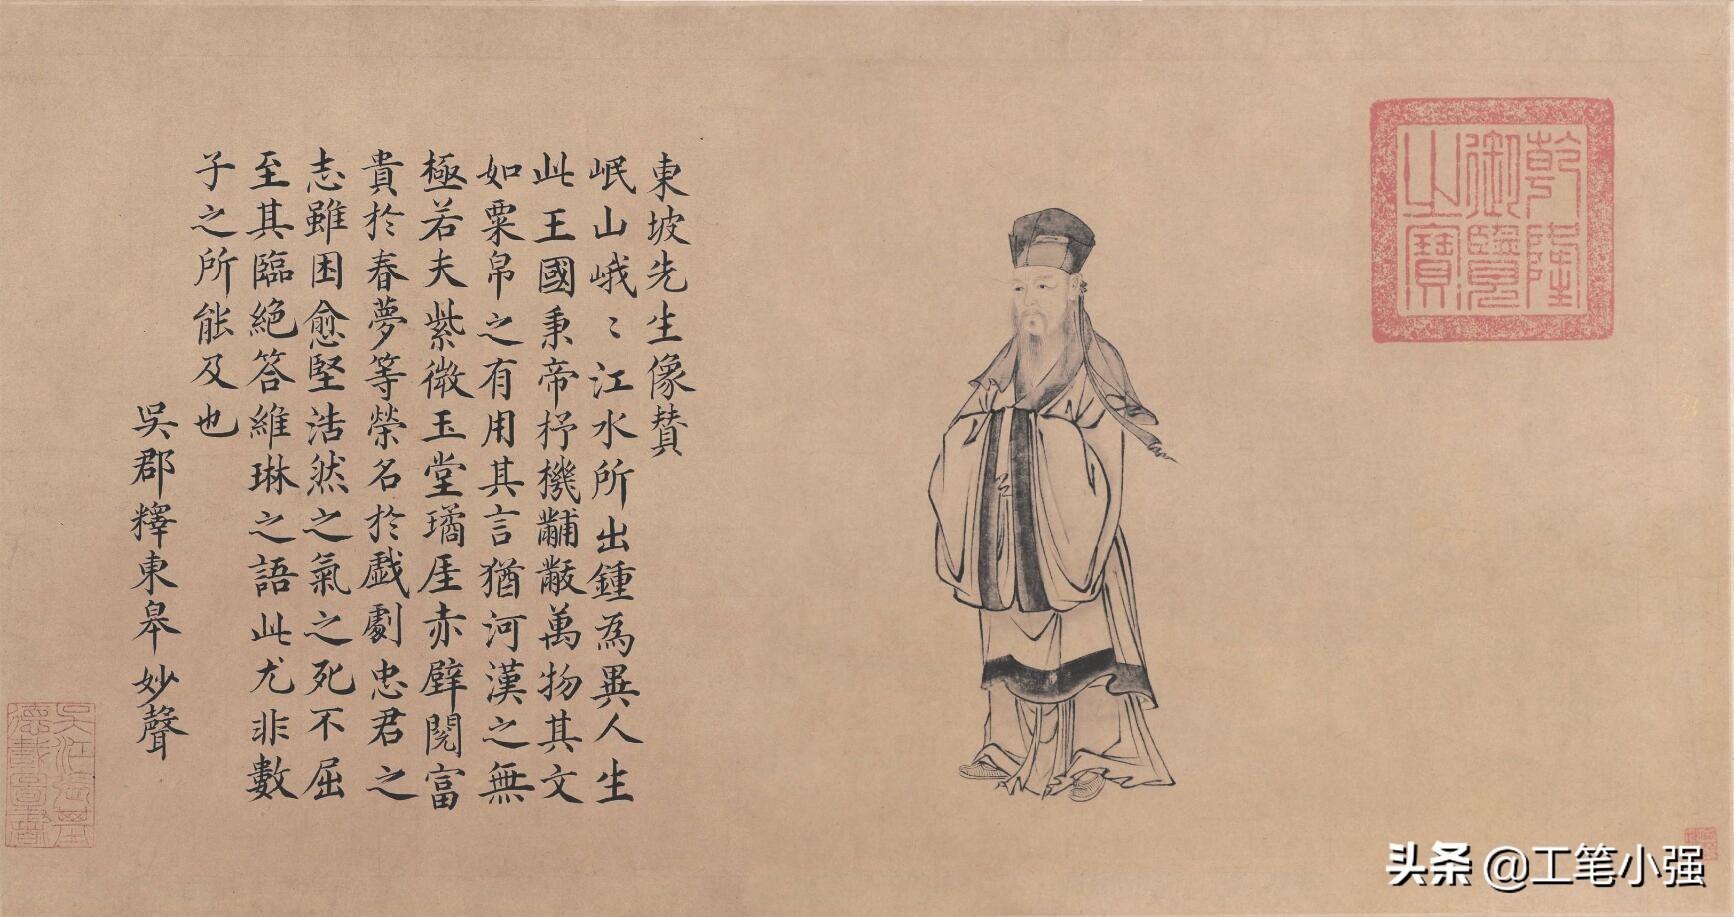 乾隆
御覽
之寶
東坡先生像賛
岷山峨〻江水所出鍾為異人生
此王國秉帝杼機黼黻萬物其文
如粟帛之有用其言猶河漢之無
極若夫紫微玉堂璚厓赤壁閱富
貴於春夢等榮名於戲劇忠君之
志雖困愈堅浩然之氣之死不屈
至其臨絶答維琳之語此尤非數
子之所能及也
吳郡釋東皋妙聲
头条 @工笔小强